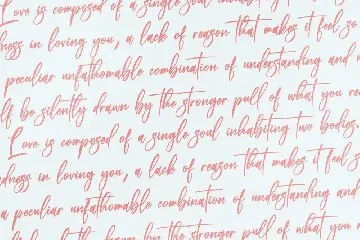 Love is composed of a single soul inhabiting
ness in loving you, a lack of reason that makes it feel so
peculiar unfathomable combination of understanding and
lf be silently drawn by the stronger pull of what you re
Love is composed of a single soul inhabiting two bodies.
dness in loving you, a lack of reason that makes it feel
a peculiar unfathomable combination of understanding and
by the stronger pull of what you